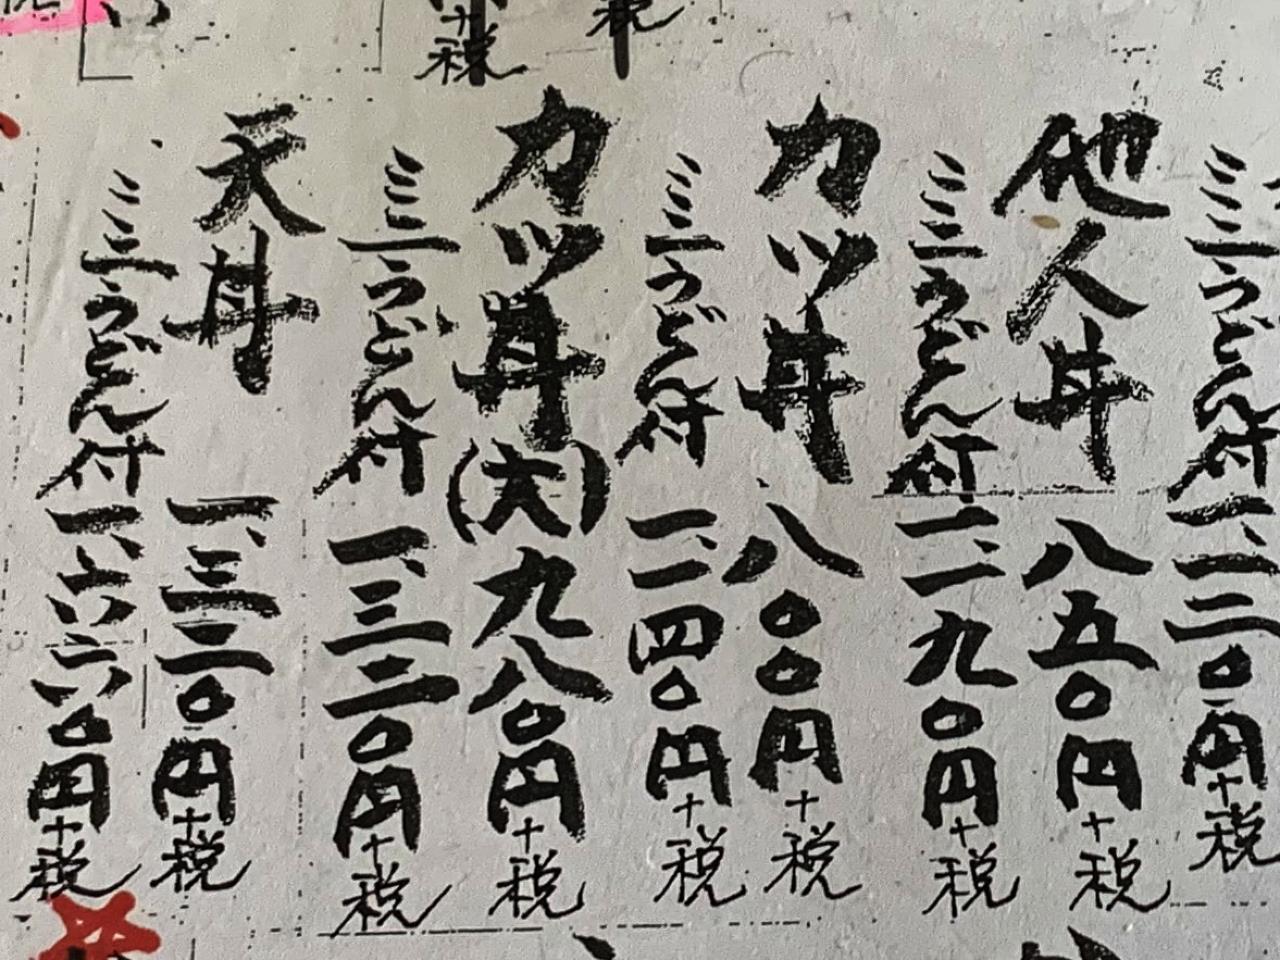 ミニうどん付 一、一二〇円+税
他人丼 八五〇円+税
ミニうどん付 一、一九〇円+税
カツ丼 八〇〇円+税
ミニうどん付 一、一四〇円+税
カツ丼(大) 九八〇円+税
ミニうどん付 一、三二〇円+税
天丼 一、三二〇円+税
ミニうどん付 一、六六〇円+税
+税
税